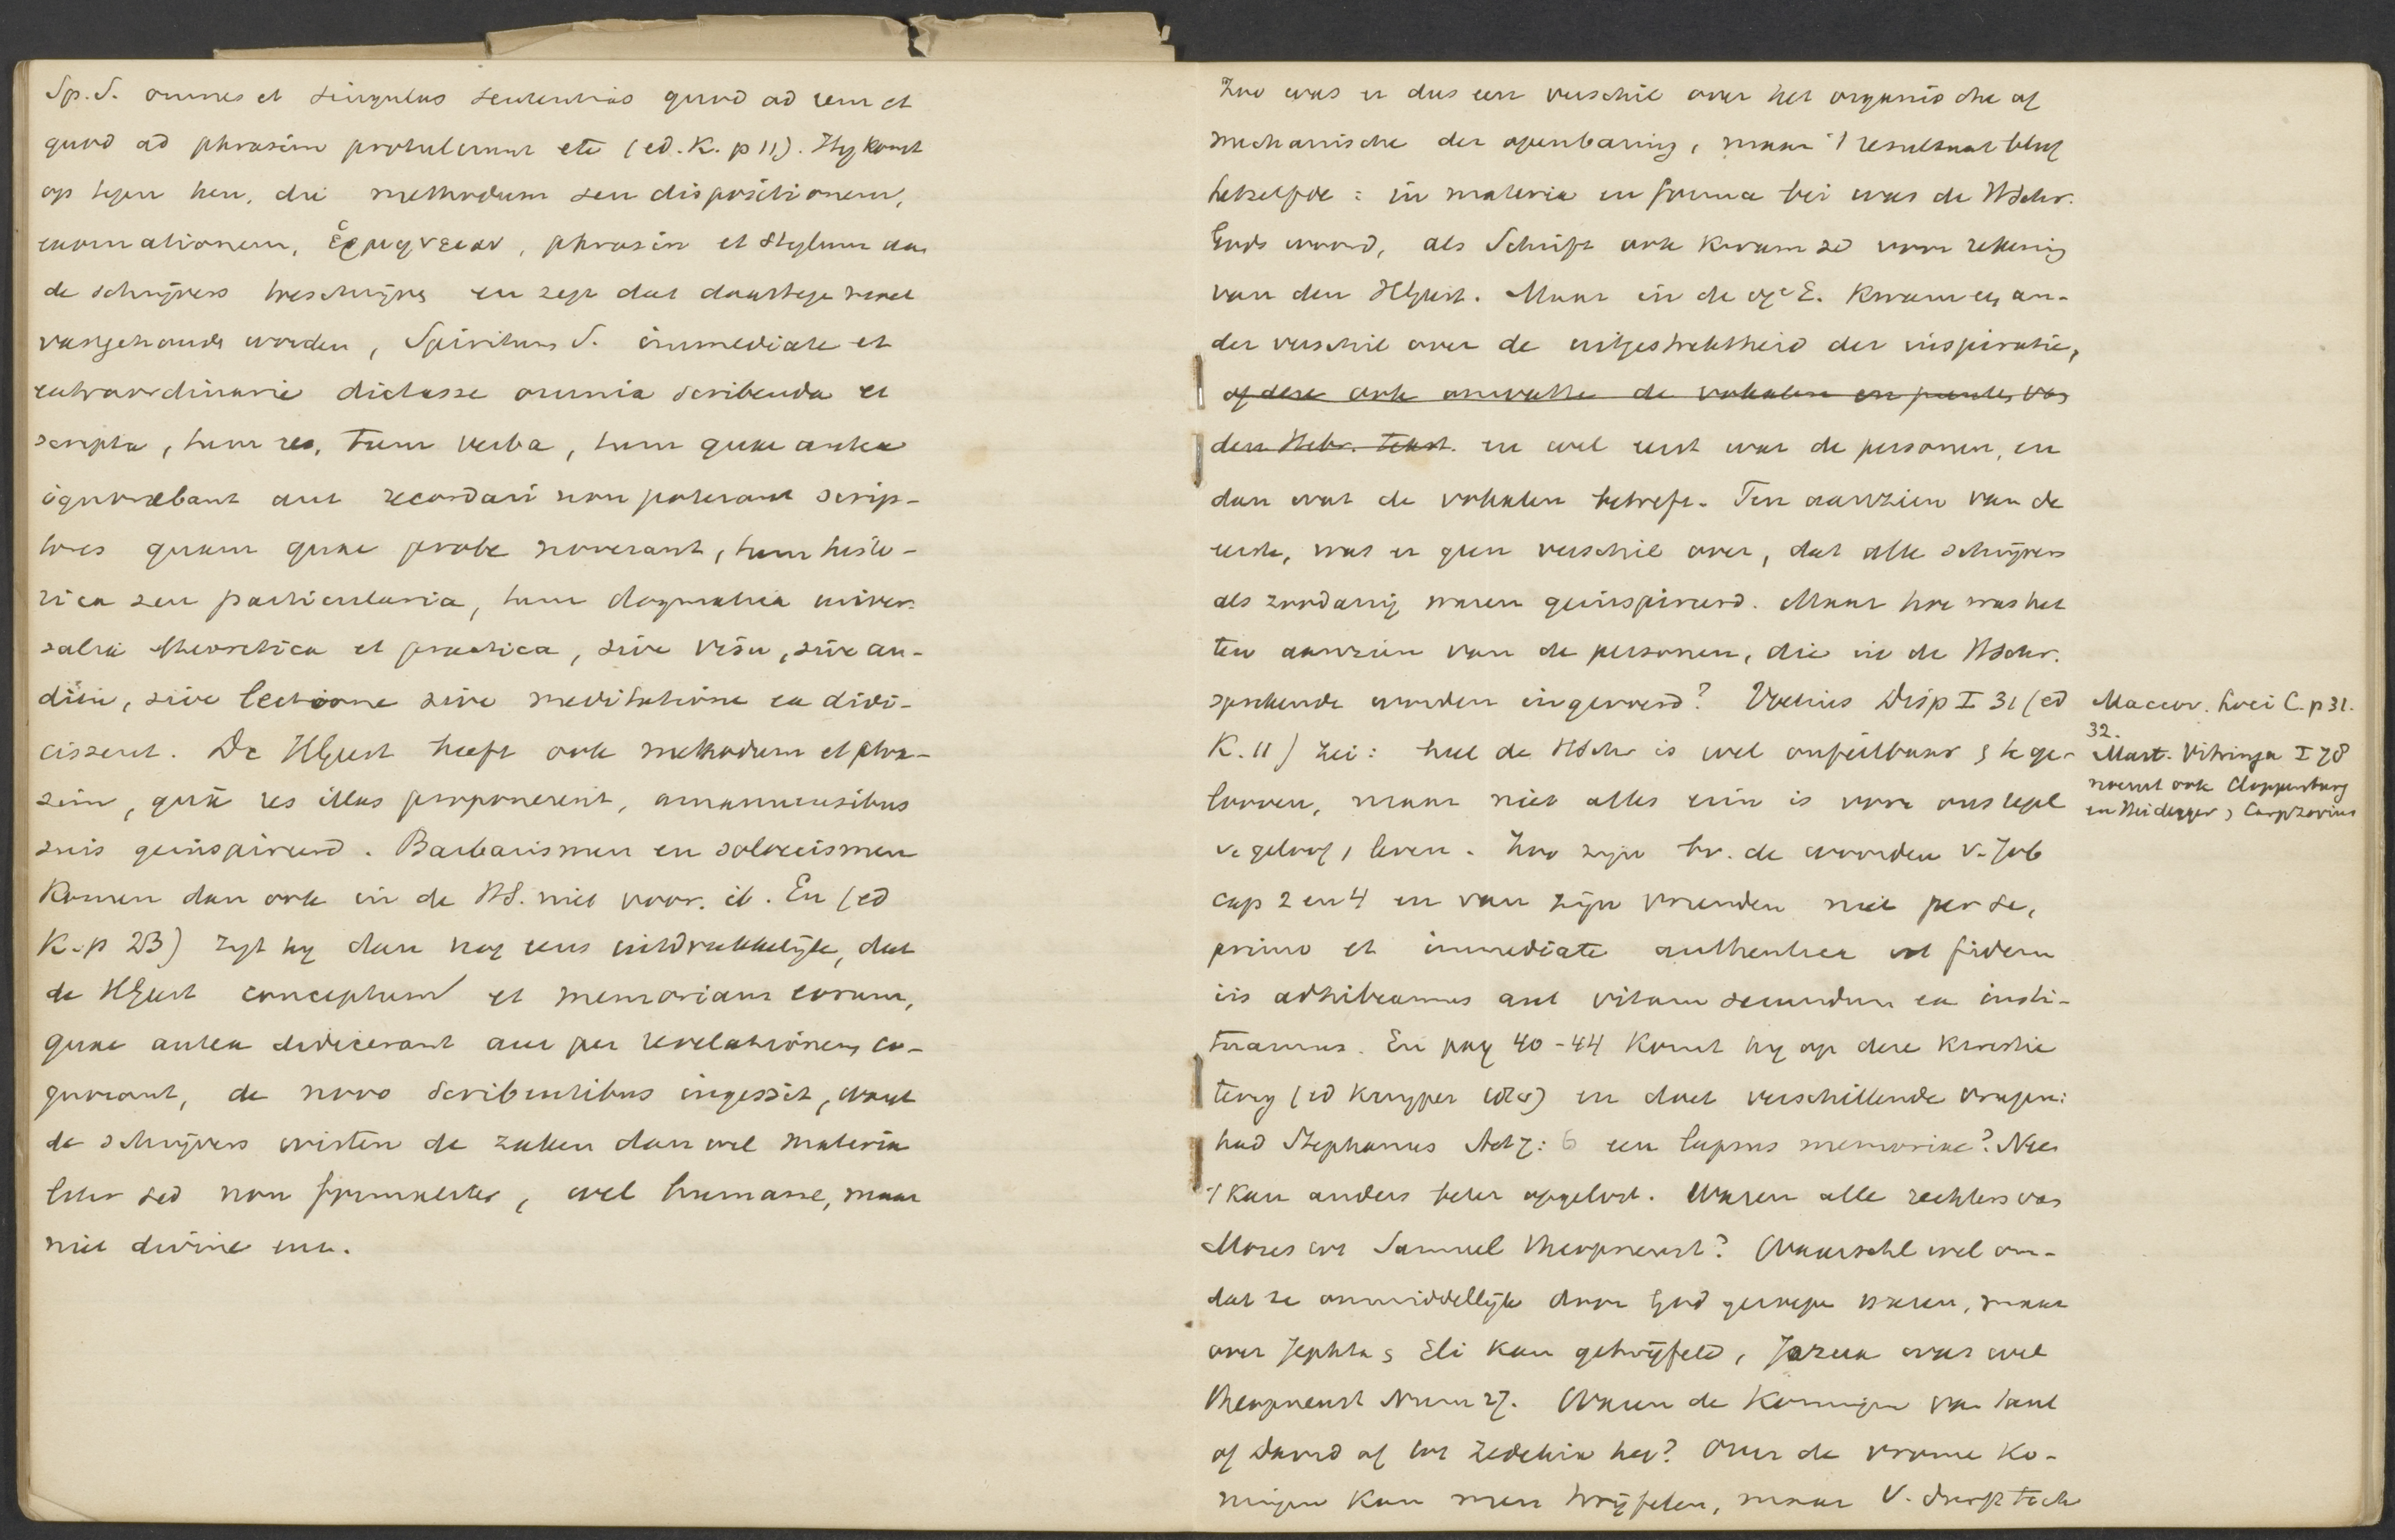 Sp. S. omnes et singulas sententias quod ad rem et
quod ad phrasim protulerunt etc (ed. K. p 11). Hij komt
op tegen hen, die methodum seu dispositionem,
exornationem, ἑρμηνειαν, phrasin et stylum aan
de schrijvers toeschrijven en zegt dat daartegen moet
vastgehouden worden, Spiritum S. immediate et
extraordinarie dictasse omnia scribenda et
scripta, tum res, tum verba, tum quae antea
ignorabant aut recordari non poterant scrip-
tores quam quae probe noverant, tum histo-
rica seu particularia, tum dogmatica univer-
salia theoretica et practica, sive visu, sive au-
ditu, sive lectione sive meditatione ea didi-
cissent. De HGeest heeft ook methodum et phra-
sin, quâ res illas proponerent, amanuensibus
suis geinspireerd. Barbarismen en soloecismen
komen dan ook in de HS. niet voor. ib. En (ed
K. p 23) zegt hij dan nog eens uitdrukkelijk, dat
de HGeest conceptum et memoriam eorum,
quae antea didicerant aut per revelationem co-
gnorant, de novo scribentibus ingessit, want
de schrijvers wisten de zaken dan wel materia
liter sed non formaliter, wel humane, maar
niet divine enz.
Zoo was er dus een verschil over het organische of
mechanische der openbaring, maar 't resultaat bleef
hetzelfde: in materia en forma bei was de HSchr.
Gods woord, als Schrift ook kwam ze voor rekening
van den HGeest. Maar in de 17e E. kwam een an-
der verschil over de uitgestrektheid der inspiratie,
of deze ook omvatte de vokalen en punten van
den Hebr. tekst. en wel eerst wat de personen, en
dan wat de vokalen betreft. Ten aanzien van de
eerste, was er geen verschil over, dat alle schrijvers
als zoodanig waren geinspireerd. Maar hoe was het
ten aanzien van de personen, die in de HSchr.
sprekende worden ingevoerd? Voetius Disp I 31 (ed
K. 11) zei: heel de HSchr is wel onfeilbaar & te ge-
looven, maar niet alles erin is voor ons regel
v. geloof, leven. Zoo zijn bv. de woorden v. Job
cap 2 en 4 en van zijn vrienden niet per se,
primo et immediate authentica ut fidem
iis adhibeamus aut vitam secundum ea insti-
tuamus. En pag 40-44 komt hij op deze kwestie
terug (ed Kuyper) en doet verschillende vragen:
had Stephanus Act 7: 6 een lapsus memoriae? Nee
't kan anders beter opgelost. Waren alle rechters van
Mozes tot Samuel theopneust? Waarschl wel om-
dat ze onmiddellijk door God geroepen waren, maar
over Jephta & Eli kan getwijfeld, Jozua was wel
theopneust Num 27. Waren de koningen van Saul
of David af tot Zedekia het? Over de vrome ko-
ningen kan men twijfelen, maar V. durft toch
Maccov. Loci C. p 31.
32.
Mart. Vitringa I 78
noemt ook Cloppenburg
en Heidegger, Carpzovius